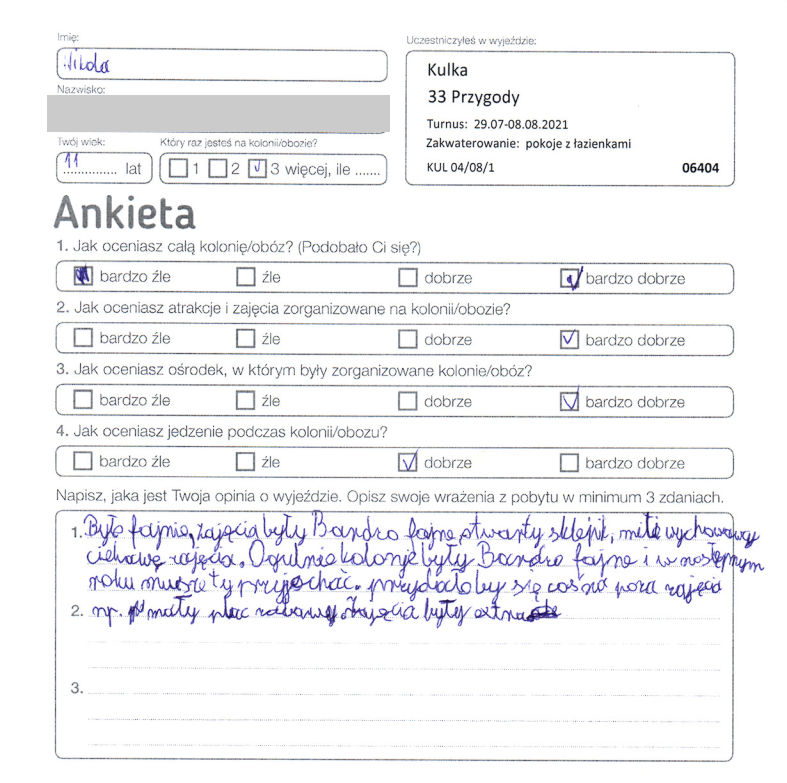 Imię:
Nikola
Uczestniczyłeś w wyjeździe:
Kulka
33 Przygody
Turnus: 29.07-08.08.2021
Zakwaterowanie: pokoje z łazienkami
KUL 04/08/1 06404
Nazwisko:
Twój wiek:
11 lat
Który raz jesteś na kolonii/obozie?
1 2 3 więcej, ile .......
Ankieta
1. Jak oceniasz całą kolonię/obóz? (Podobało Ci się?)
bardzo źle źle dobrze bardzo dobrze
2. Jak oceniasz atrakcje i zajęcia zorganizowane na kolonii/obozie?
bardzo źle źle dobrze bardzo dobrze
3. Jak oceniasz ośrodek, w którym były zorganizowane kolonie/obóz?
bardzo źle źle dobrze bardzo dobrze
4. Jak oceniasz jedzenie podczas kolonii/obozu?
bardzo źle źle dobrze bardzo dobrze
Napisz, jaka jest Twoja opinia o wyjeździe. Opisz swoje wrażenia z pobytu w minimum 3 zdaniach.
1. Było fajnie, zajęcia były Bardzo fajne, otwarty sklepik, mili wychowawcy
ciekawe zajęcia. Ogulnie kolonje były Bardzo fajne i w następnym
roku muszę ty przyjechać. przydałoby się coś na poza zajęcia
2. np. mały plac zabawy. Zajęcia były
3.